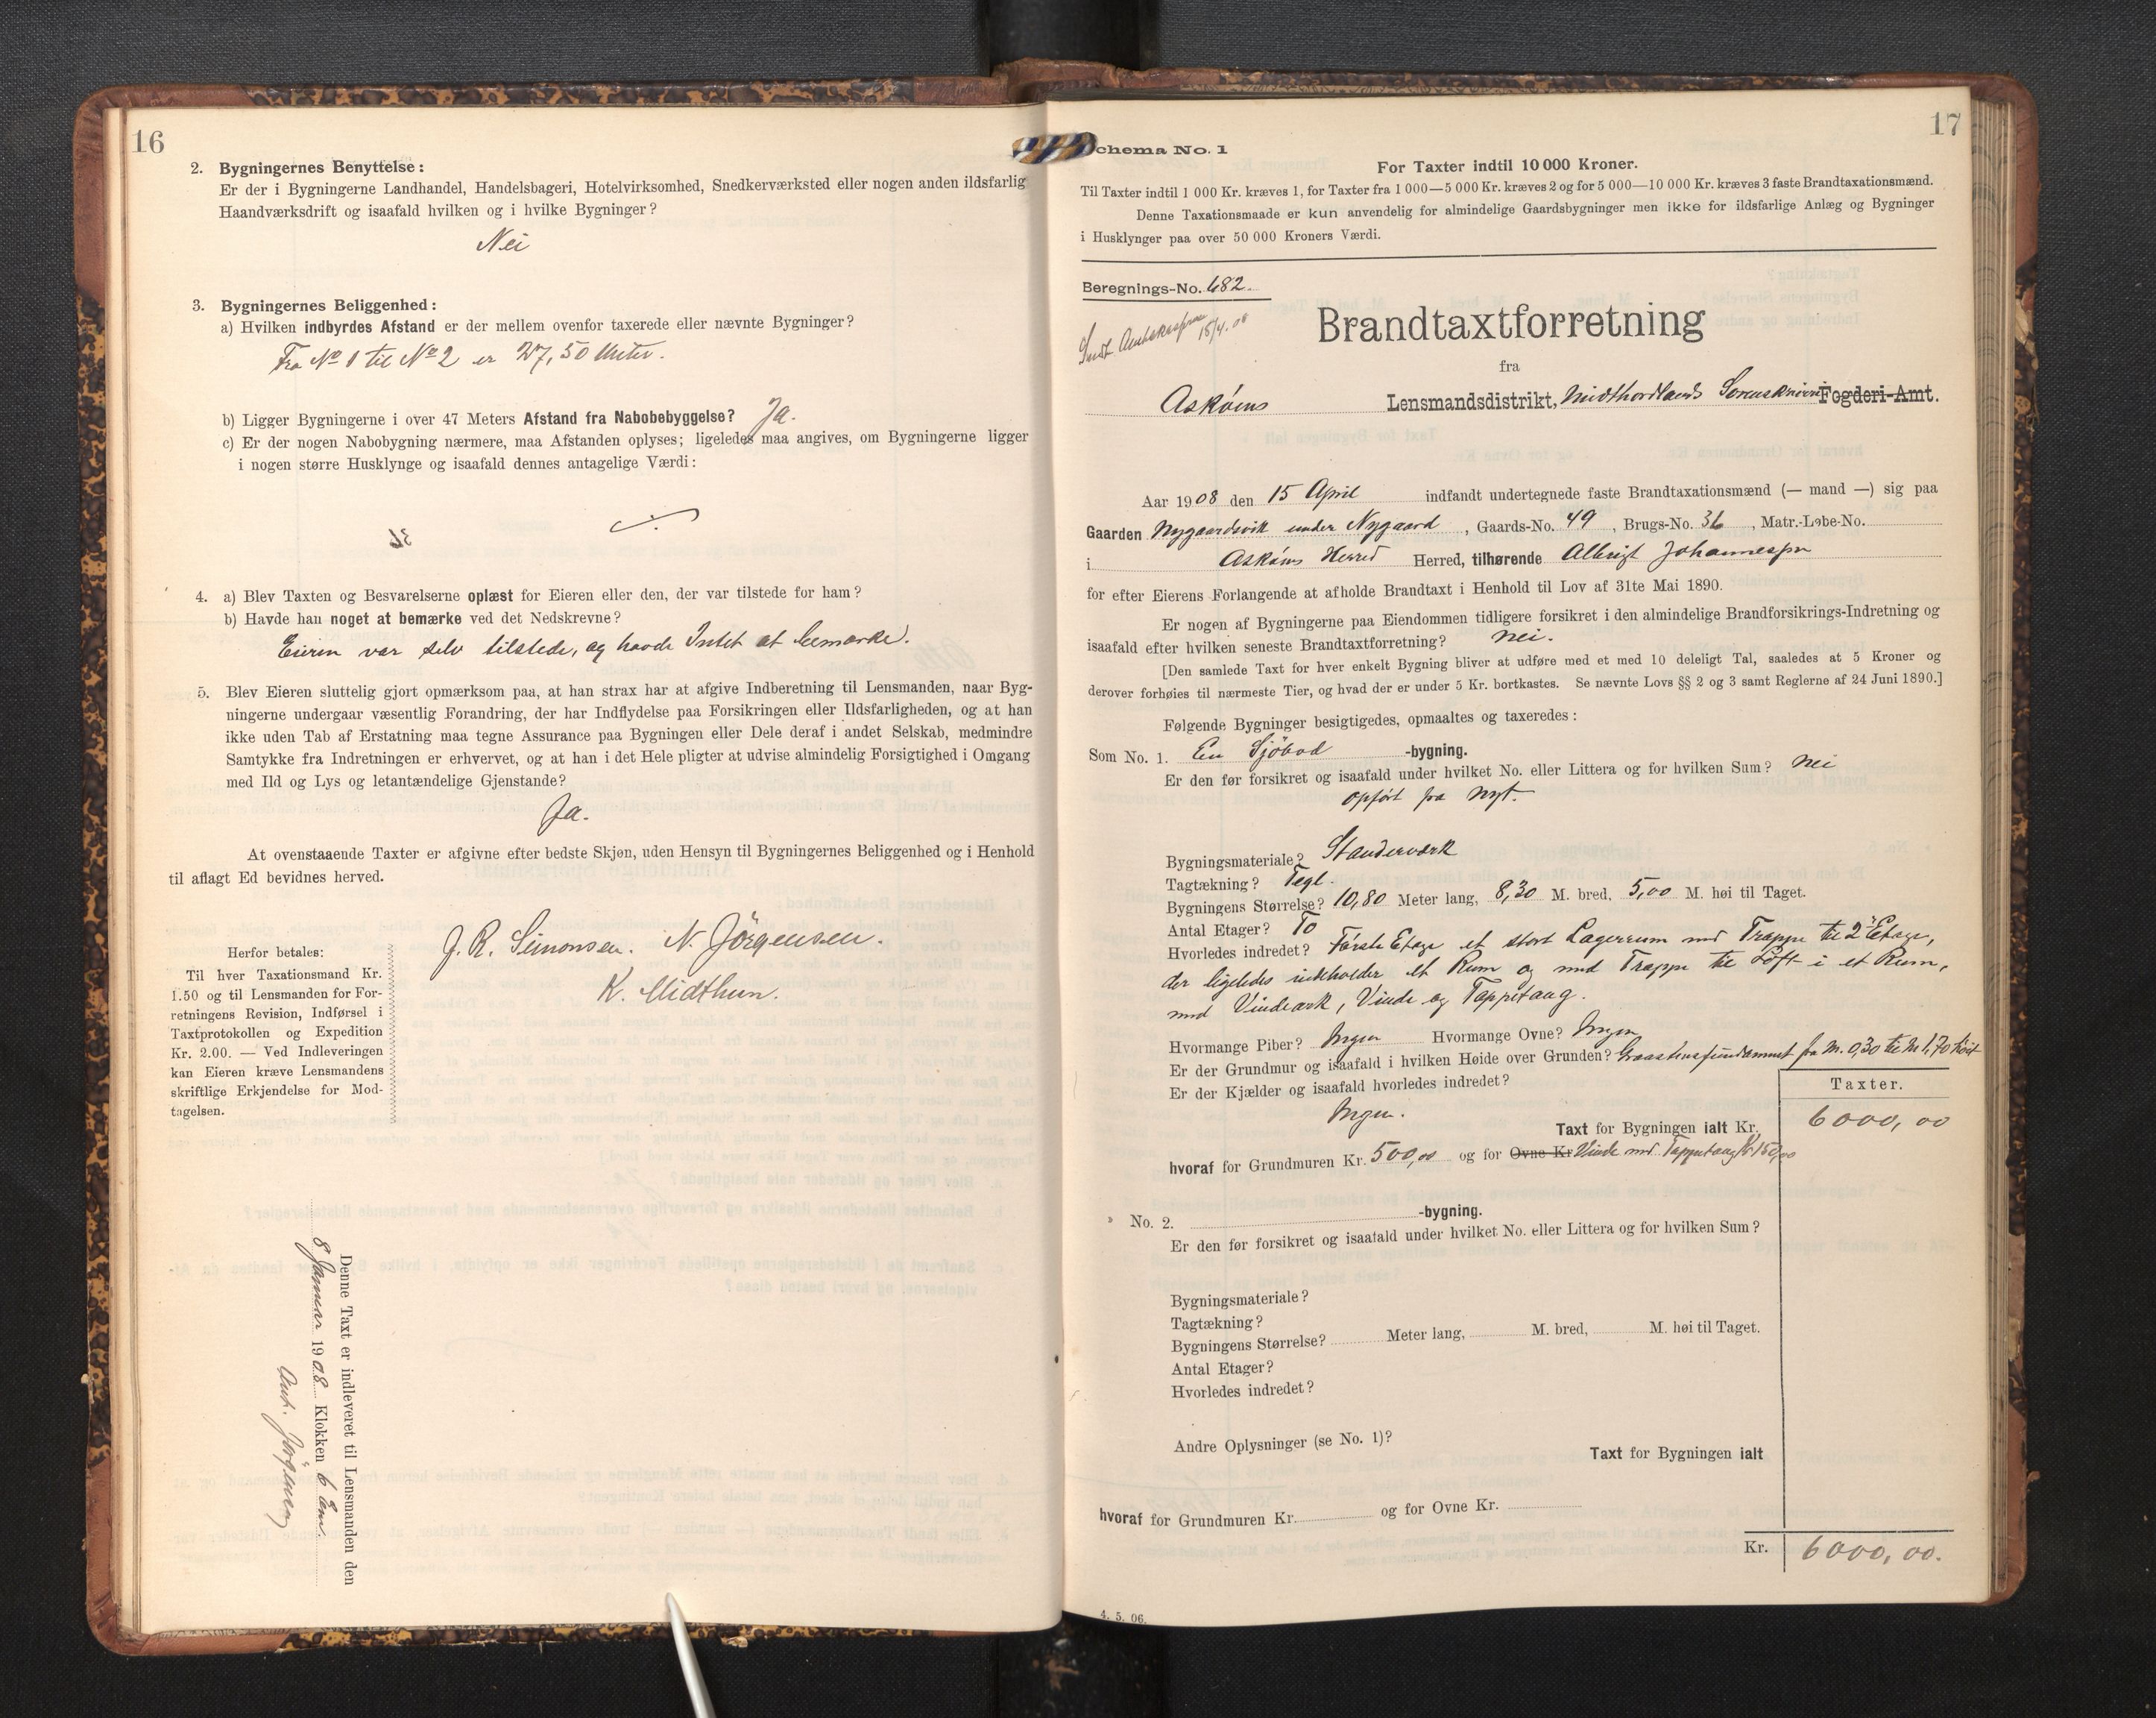 16
2. Bygningernes Benyttelse:
Er der i Bygningerne Landhandel, Handelsbageri, Hotelvirksomhed, Snedkerværksted eller nogen anden ildsfarlig
Haandværksdrift og isaafald hvilken og i hvilke Bygninger?
Nei
3. Bygningernes Beliggenhed:
a) Hvilken indbyrdes Afstand er der mellem ovenfor taxerede eller nævnte Bygninger?
Fra No 1 til No 2 er 27,50 Meter.
b) Ligger Bygningerne i over 47 Meters Afstand fra Nabobebyggelse? Ja.
c) Er der nogen Nabobygning nærmere, maa Afstanden oplyses; ligeledes maa angives, om Bygningerne ligger
i nogen større Husklynge og isaafald dennes antagelige Værdi:
4. a) Blev Taxten og Besvarelserne oplæst for Eieren eller den, der var tilstede for ham?
b) Havde han noget at bemærke ved det Nedskrevne?
Eieren var selv tilstede, og havde Intet at bemærke.
5. Blev Eieren sluttelig gjort opmærksom paa, at han strax har at afgive Indberetning til Lensmanden, naar Byg-
ningerne undergaar væsentlig Forandring, der har Indflydelse paa Forsikringen eller Ildsfarligheden, og at han
ikke uden Tab af Erstatning maa tegne Assurance paa Bygningen eller Dele deraf i andet Selskab, medmindre
Samtykke fra Indretningen er erhvervet, og at han i det Hele pligter at udvise almindelig Forsigtighed i Omgang
med Ild og Lys og letantændelige Gjenstande?
Ja.
At ovenstaaende Taxter er afgivne efter bedste Skjøn, uden Hensyn til Bygningernes Beliggenhed og i Henhold
til aflagt Ed bevidnes herved.
J. R. Simonsen. N. Jörgensen.
K. Midthun.
Herfor betales:
Til hver Taxationsmand Kr.
1.50 og til Lensmanden for For-
retningens Revision, Indførsel i
Taxtprotokollen og Expedition
Kr. 2.00. — Ved Indleveringen
kan Eieren kræve Lensmandens
skriftlige Erkjendelse for Mod-
tagelsen.
Denne Taxt er indleveret til Lensmanden den
8 Januar 1908 Klokken 6 Em
Ant. Jörgensen
17
Schema No. 1
For Taxter indtil 10 000 Kroner.
Til Taxter indtil 1 000 Kr. kræves 1, for Taxter fra 1 000—5 000 Kr. kræves 2 og for 5 000—10 000 Kr. kræves 3 faste Brandtaxationsmænd.
Denne Taxationsmaade er kun anvendelig for almindelige Gaardsbygninger men ikke for ildsfarlige Anlæg og Bygninger
i Husklynger paa over 50 000 Kroners Værdi.
Beregnings-No. 682.
15/4.08
Brandtaxtforretning
fra
Askøens Lensmandsdistrikt, Midthordlands Sorenskriveri Fogderi-Amt.
Aar 1908 den 15 April indfandt undertegnede faste Brandtaxationsmænd (— mand —) sig paa
Gaarden Nygaardsvik under Nygaard, Gaards-No. 49, Brugs-No. 36, Matr.-Løbe-No.
i Askøens Herred Herred, tilhørende Albrigt Johannesen
for efter Eierens Forlangende at afholde Brandtaxt i Henhold til Lov af 31te Mai 1890.
Er nogen af Bygningerne paa Eiendommen tidligere forsikret i den almindelige Brandforsikrings-Indretning og
isaafald efter hvilken seneste Brandtaxtforretning? Nei.
[Den samlede Taxt for hver enkelt Bygning bliver at udføre med et med 10 deleligt Tal, saaledes at 5 Kroner og
derover forhøies til nærmeste Tier, og hvad der er under 5 Kr. bortkastes. Se nævnte Lovs §§ 2 og 3 samt Reglerne af 24 Juni 1890.]
Følgende Bygninger besigtigedes, opmaaltes og taxeredes:
Som No. 1. En Sjöbod -bygning.
Er den før forsikret og isaafald under hvilket No. eller Littera og for hvilken Sum? Nei
opfört fra nyt.
Bygningsmateriale? Standerværk
Tagtækning? Tegl.
Bygningens Størrelse? 10,80 Meter lang, 8,30 M. bred, 5,00 M. høi til Taget.
Antal Etager? To
Hvorledes indredet? Første Etage et stort Lagerrum med Trappe til 2' Etage,
der ligeledes indeholder et Rum og med Trappe til Loft i et Rum,
med Vindeark, Vinde og Tappetaug.
Hvormange Piber? Ingen Hvormange Ovne? Ingen
Er der Grundmur og isaafald i hvilken Høide over Grunden? Graastensfundament fra M. 0,30 til M 1,70 höit
Er der Kjælder og isaafald hvorledes indredet?
Ingen.
Taxter.
Taxt for Bygningen ialt Kr. 6000,00
hvoraf for Grundmuren Kr. 500,00 og for Ovne Kr Vinde med Tappetaug Kr 150,00
» No. 2. -bygning.
Er den før forsikret og isaafald under hvilket No. eller Littera og for hvilken Sum?
Bygningsmateriale?
Tagtækning?
Bygningens Størrelse? Meter lang, M. bred, M. høi til Taget.
Antal Etager?
Hvorledes indredet?
Andre Oplysninger (se No. 1)?
Taxt for Bygningen ialt
hvoraf for Grundmuren Kr. og for Ovne Kr.
Kr. 6000,00.
4. 5. 06.